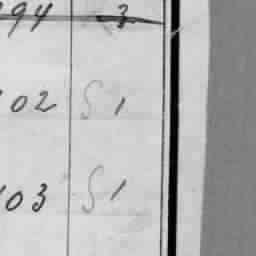 194 3
102 S 1
103 S 1